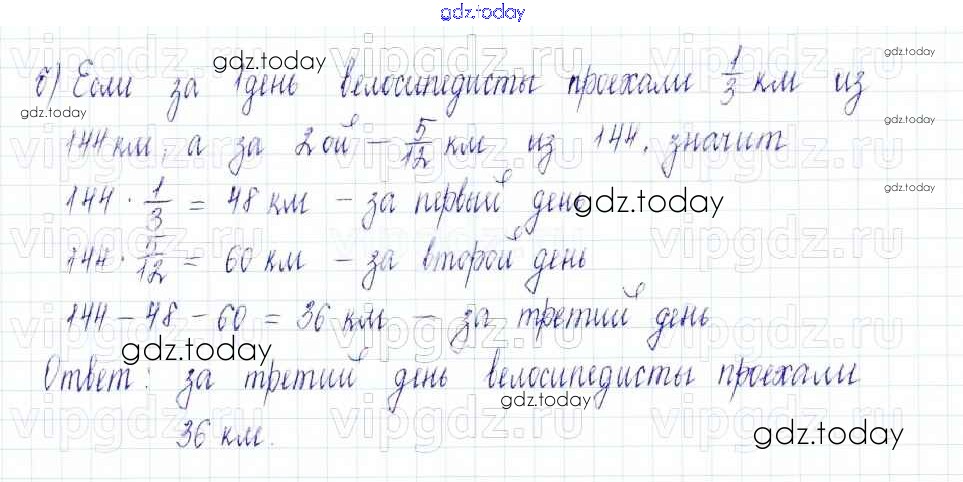 gdz.today
б) Если за 1 день велосипедисты проехали 1/3 км из
144 км, а за 2ой – 5/12 км из 144, значит
144 · 1/3 = 48 км – за первый день
144 · 5/12 = 60 км – за второй день
144 – 48 – 60 = 36 км – за третий день
Ответ: за третий день велосипедисты проехали
36 км.
gdz.today
gdz.today
gdz.today
gdz.today
gdz.today
gdz.today
gdz.today
gdz.today
gdz.today
gdz.today
vipgdz.ru